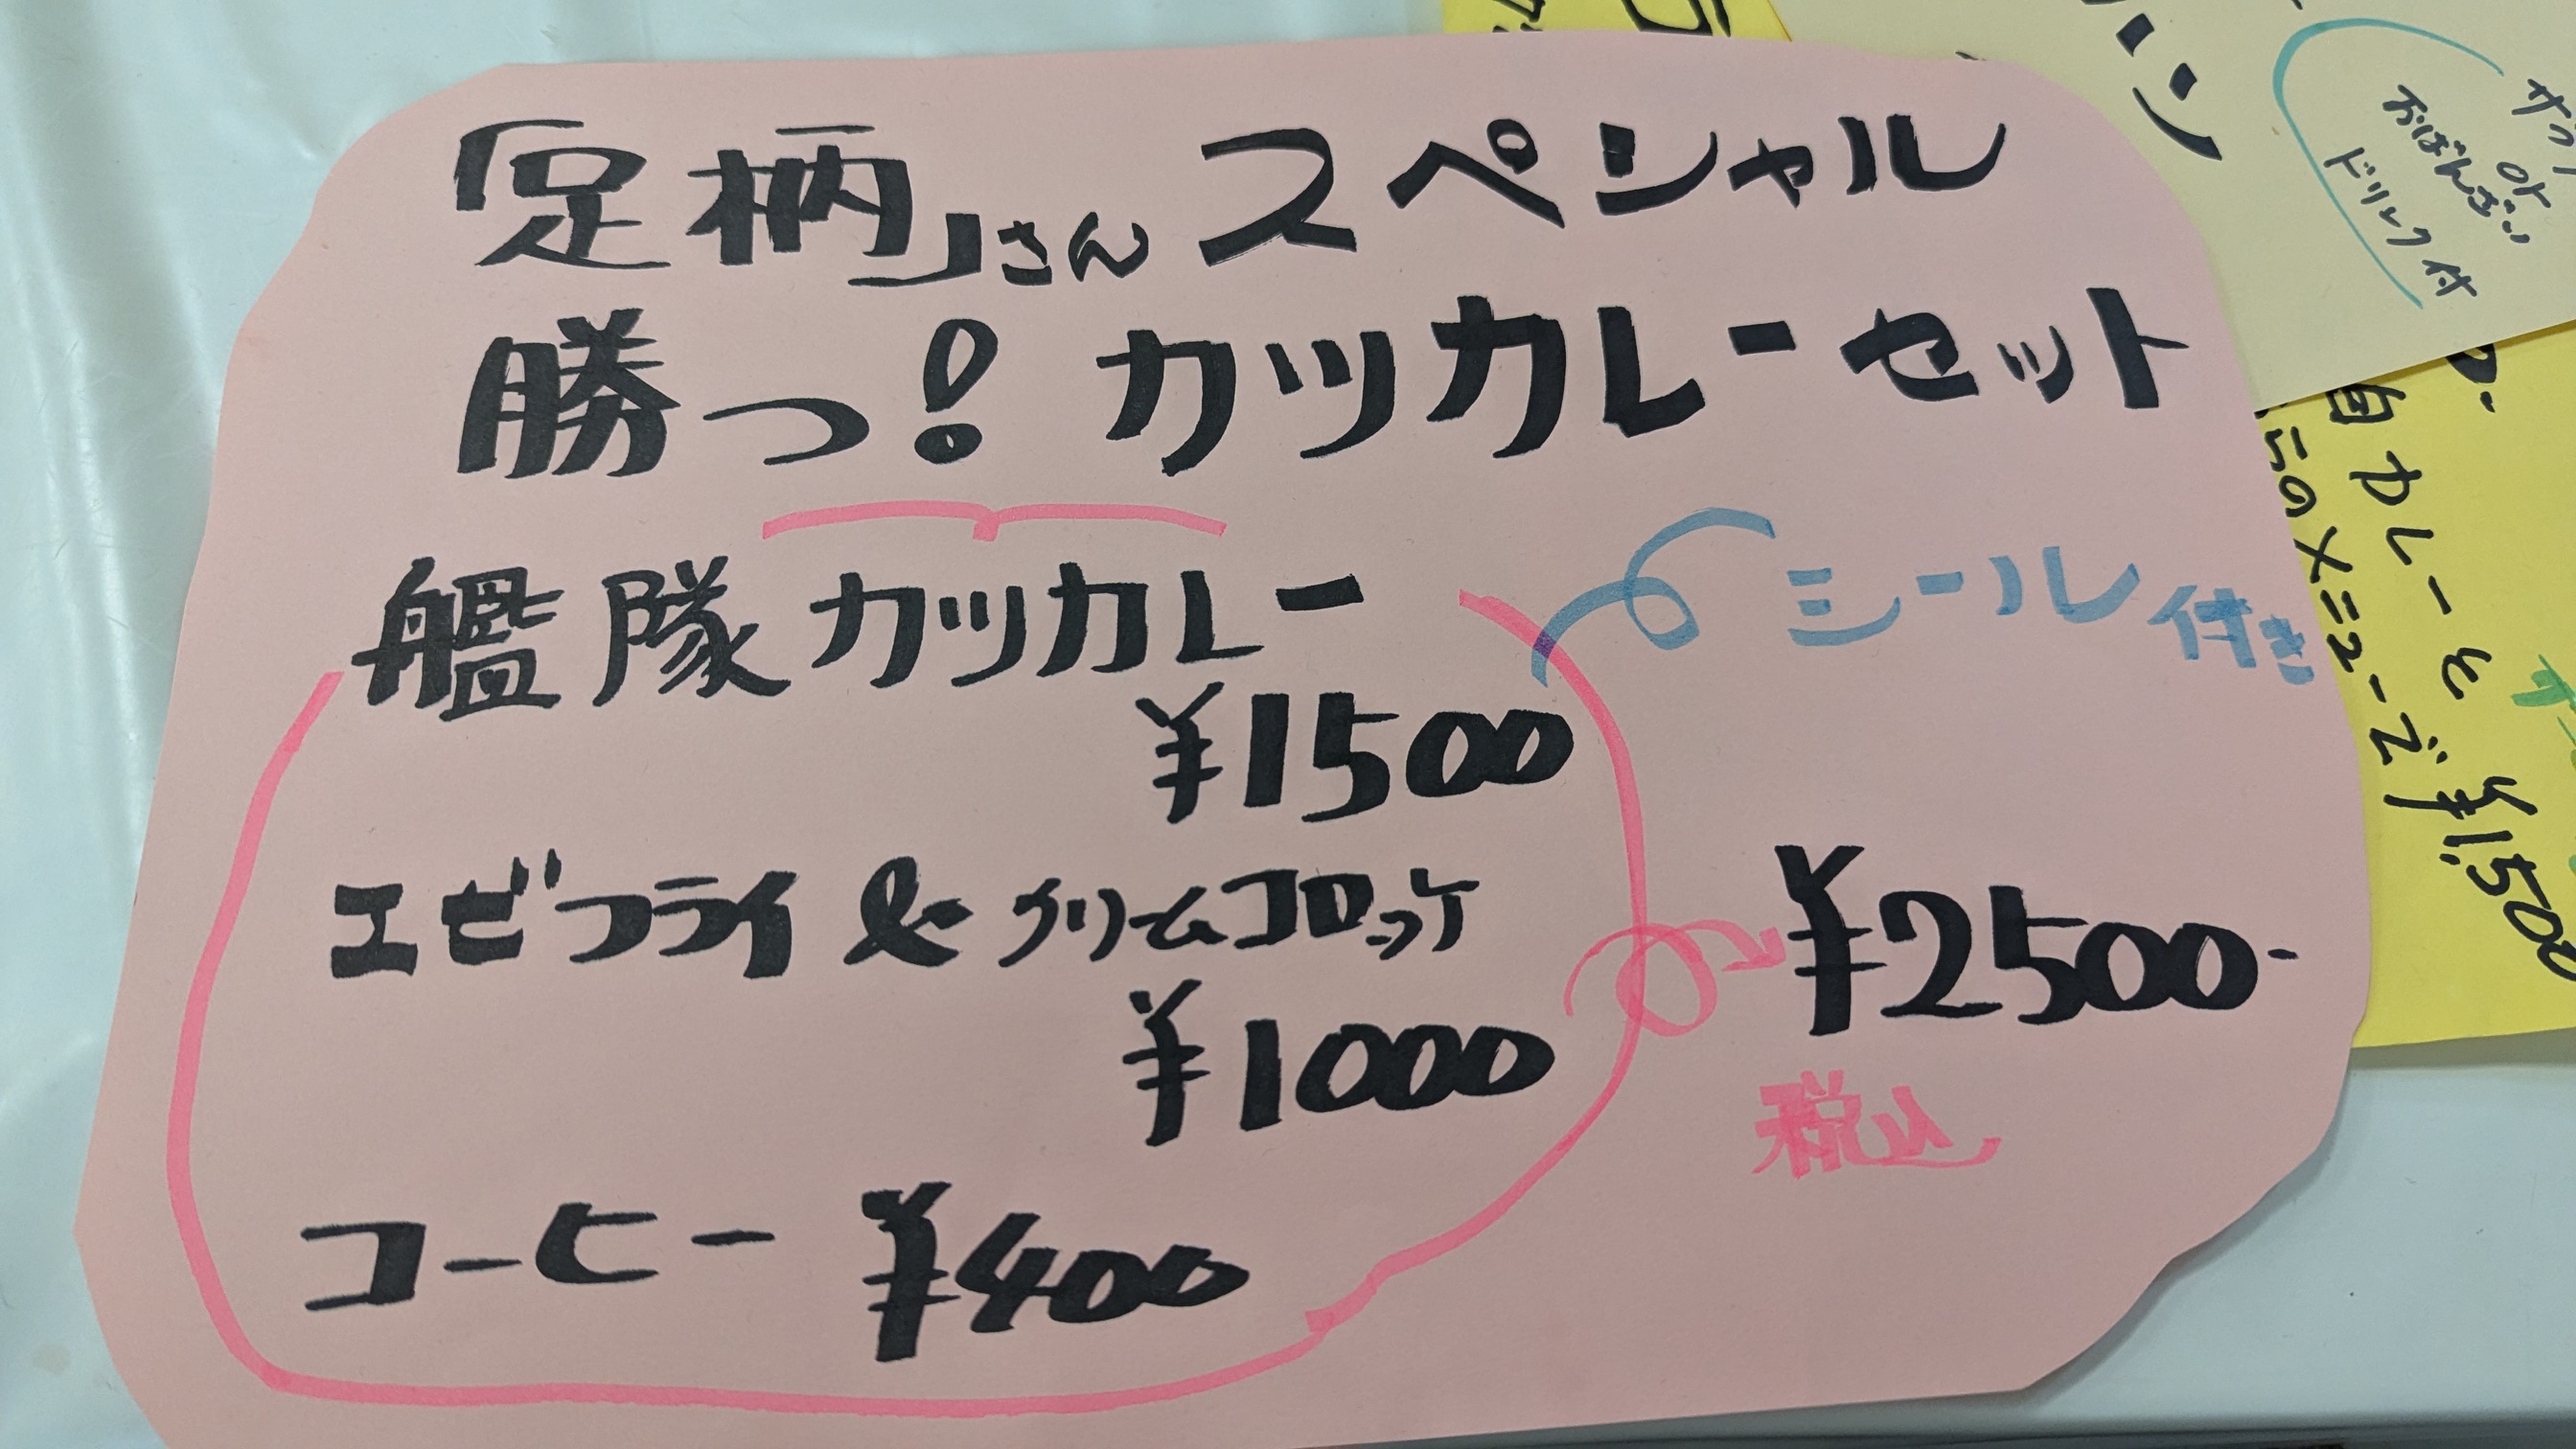 「足柄」さん スペシャル
勝つ! カツカレーセット
艦隊カツカレー
シール付き
¥1500
エビフライ & クリームコロッケ
¥1000
¥2500-
税込
コーヒー ¥400
or
おばんざい
ドリンク付
カレーと
¥1,500